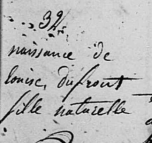 32
naissance de
Louise, dufront
fille naturelle